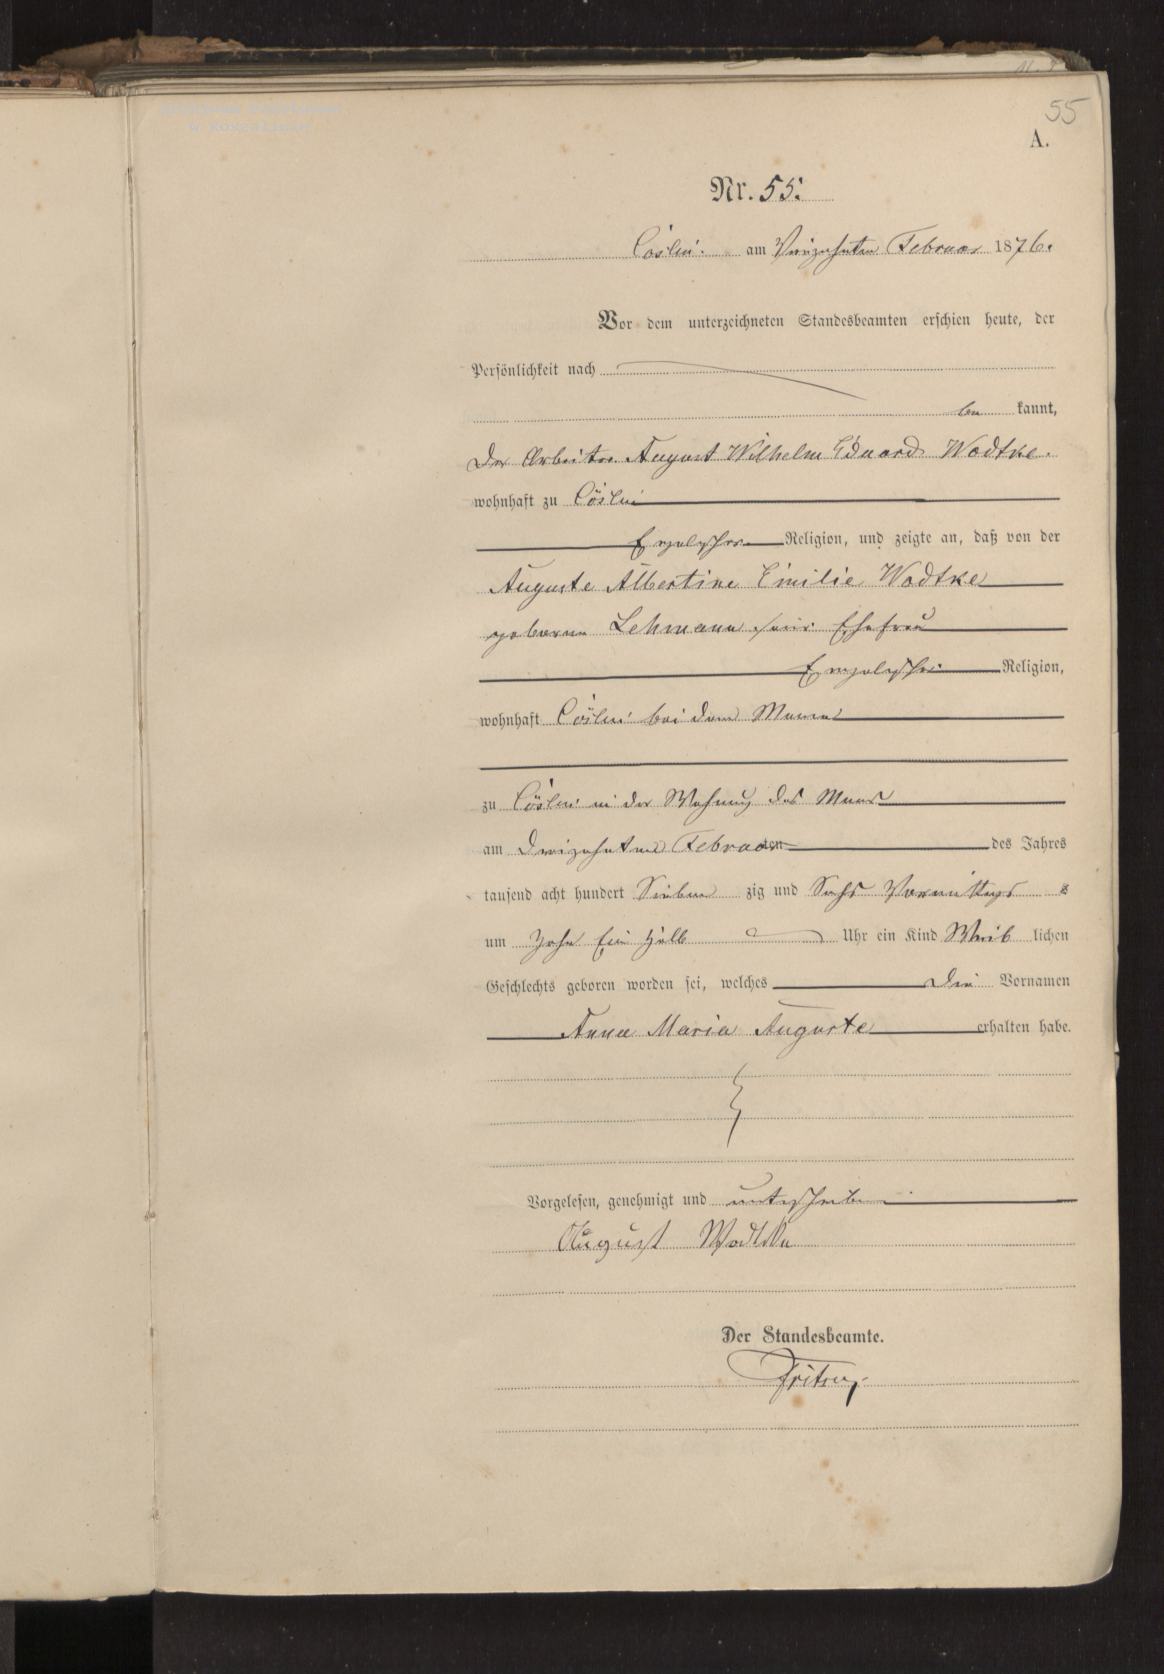 55
A.
Archiwum Państwowe
w Koszalinie
Nr. 55.
Cöslin am Vierzehnten Februar 1876.
Vor dem unterzeichneten Standesbeamten erschien heute, der
Persönlichkeit nach
be kannt,
Der Arbeiter August Wilhelm Eduard Wodtke.
wohnhaft zu Cöslin
Evgelischer Religion, und zeigte an, daß von der
Auguste Albertine Emilie Wodtke
geborne Lehmann seine Ehefrau
Evngelischer Religion,
wohnhaft Cöslin bei dem Manne
zu Cöslin in der Wohnung des Manns
am Dreizehnten Februar ten des Jahres
tausend acht hundert Sieben zig und Sechs Vormittags
um Zehn Ein halb Uhr ein Kind Weib lichen
Geschlechts geboren worden sei, welches Die Vornamen
Anna Maria Auguste erhalten habe.
Vorgelesen, genehmigt und unterschrieben
August Wodtke
Der Standesbeamte.